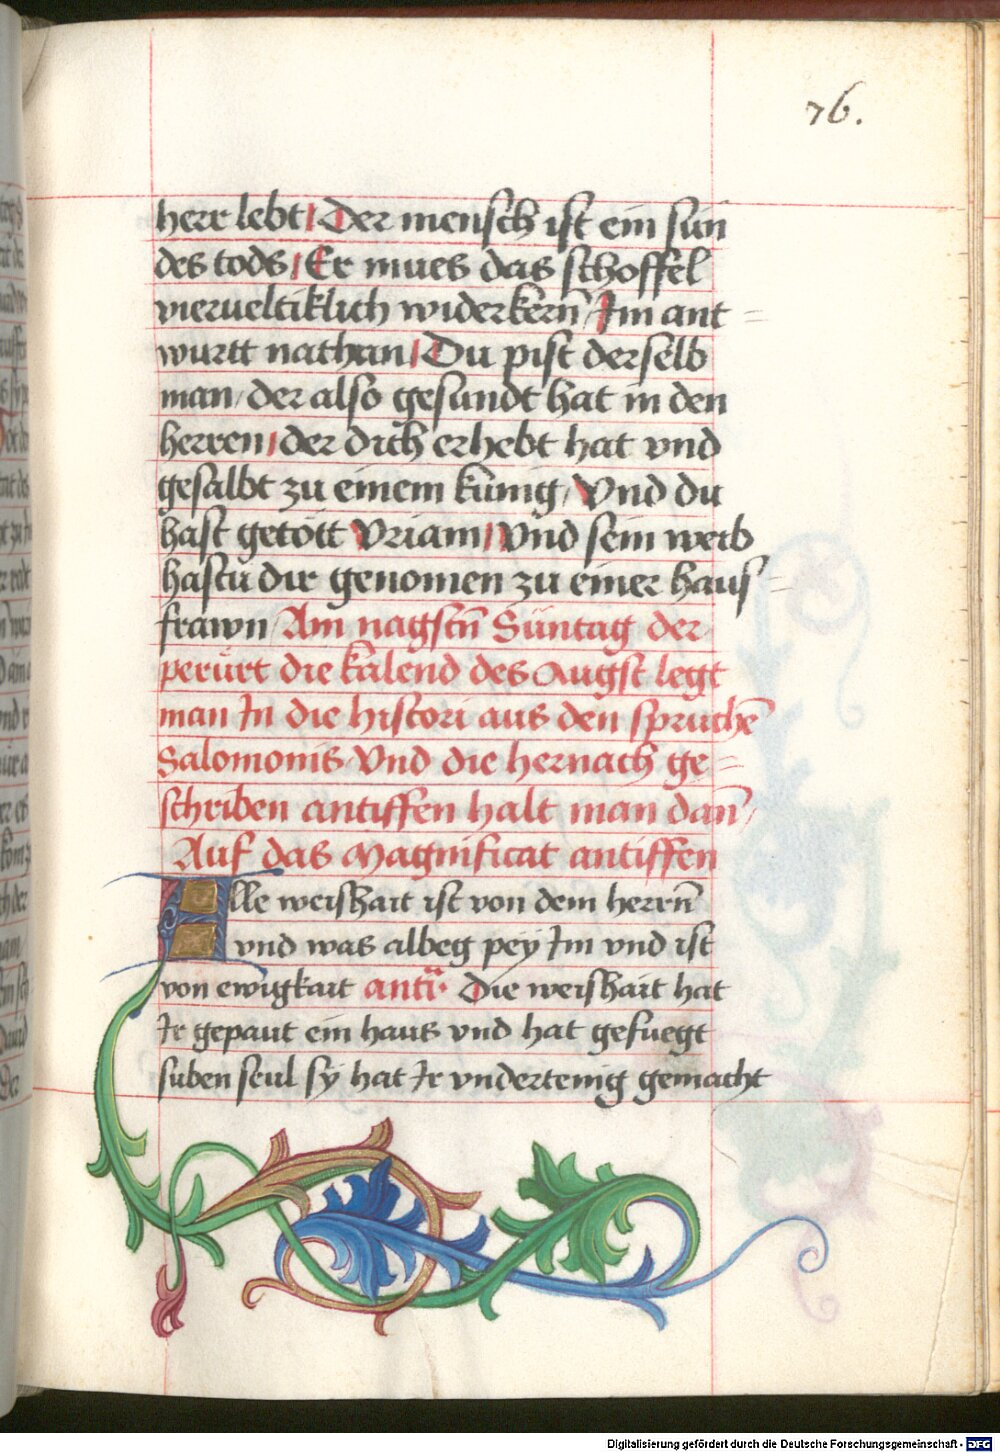 76.
herr lebt / Der mensch ist ein sun
des tods / Er mues das schoffel
vierueltiklich widerkern̄ / Im ant=
wurtt nathan / Du pist derselb
man / der also gesundt hat in den
herren / der dich erhebt hat vnd
gesalbt zu einem kunig / Vnd du
hast getött Vriam / Vnd sein weib
hastu dir genomen zu einer haus=
frawn / Am nagstn̄ Sũntag der
perürt die kalend des Augst legt
man In die histori aus den spruchē
Salomonis / Vnd die hernach ge=
schriben antiffen halt man dan̄ /
Auf das Magnificat antiffen
Alle weishait ist von dem herrn̄
vnd was albeg pey Im vnd ist
von ewigkait antī · Die weishait hat
Ir gepaut ein haus vnd hat gefuegt
suben seul sy hat Ir vndertenig gemacht
Digitalisierung gefördert durch die Deutsche Forschungsgemeinschaft - DFG